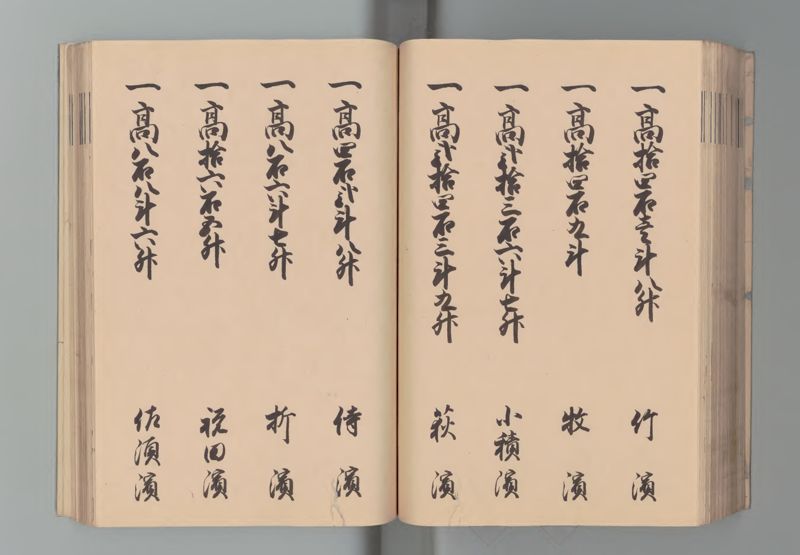 一高拾四石壱斗八升 竹濱
一高拾四石九斗 牧濱
一高弐拾三石六斗七升 小積濱
一高弐拾四石三斗九升 荻濱
一高四石弐斗八升 侍濱
一高八石六斗七升 折濱
一高拾六石五升 祝田濱
一高八石八斗六升 佐須濱